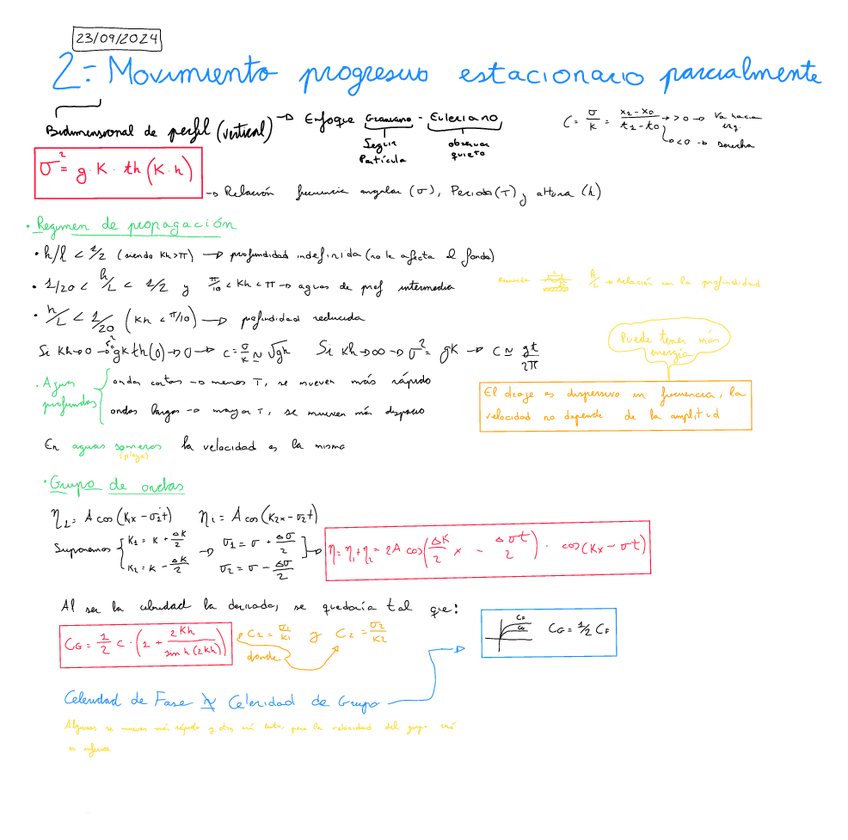 23/09/2024
2= Movimiento progresivo estacionario parcialmente
Bidimensional de perfil (vertical) → Enfoque Gravano - Euleriano
Seguir Partícula
observar quieto
C = σ/K = (x₁-x₀)/(t₁-t₀) → >0 → Va hacia izq
→ <0 → derecha
σ² = g · K · th(K·h)
→ Relación frecuencia angular (σ), Periodo (T) y altura (h)
· Regimen de propagación
· h/l < 1/2 (siendo Kh>π) → profundidad indefinida (no le afecta el fondo)
· 1/20 < h/L < 1/2 y π/10 < Kh < π → aguas de prof intermedia
h/L → Relación con la profundidad
· h/L < 1/20 (Kh < π/10) → profundidad reducida
Si Kh→0 → σ² gk th(0) → 0 → c = σ/K ≈ √gh Si Kh→∞ → σ² = gK → C ≃ gt/2π
Puede tener más energía
· Aguas profundas { ondas cortas → menos T, se mueven más rápido
ondas largas → mayor T, se mueven más despacio
El oleaje es dispersivo en frecuencia, la velocidad no depende de la amplitud
En aguas someras la velocidad es la misma
(playa)
· Grupo de ondas
η₁ = A cos (K₁x - σ₁t) η₂ = A cos (K₂x - σ₂t)
Suponemos { K₁ = K + ΔK/2 → σ₁ = σ + Δσ/2
K₂ = K - ΔK/2 σ₂ = σ - Δσ/2
→ η = η₁ + η₂ = 2A cos(ΔK/2 x - Δσt/2) · cos(Kx - σt)
Al ser la celeridad la derivada, se quedaría tal que:
C_G = 1/2 C · (1 + 2Kh/sinh(2Kh))
C₁ = σ₁/K₁ y C₂ = σ₂/K₂
donde
C_F
C_G
C_G = 1/2 C_F
Celeridad de Fase ≠ Celeridad de Grupo
Algunas se mueven más rápido y otras más lentas, pero la velocidad del grupo será